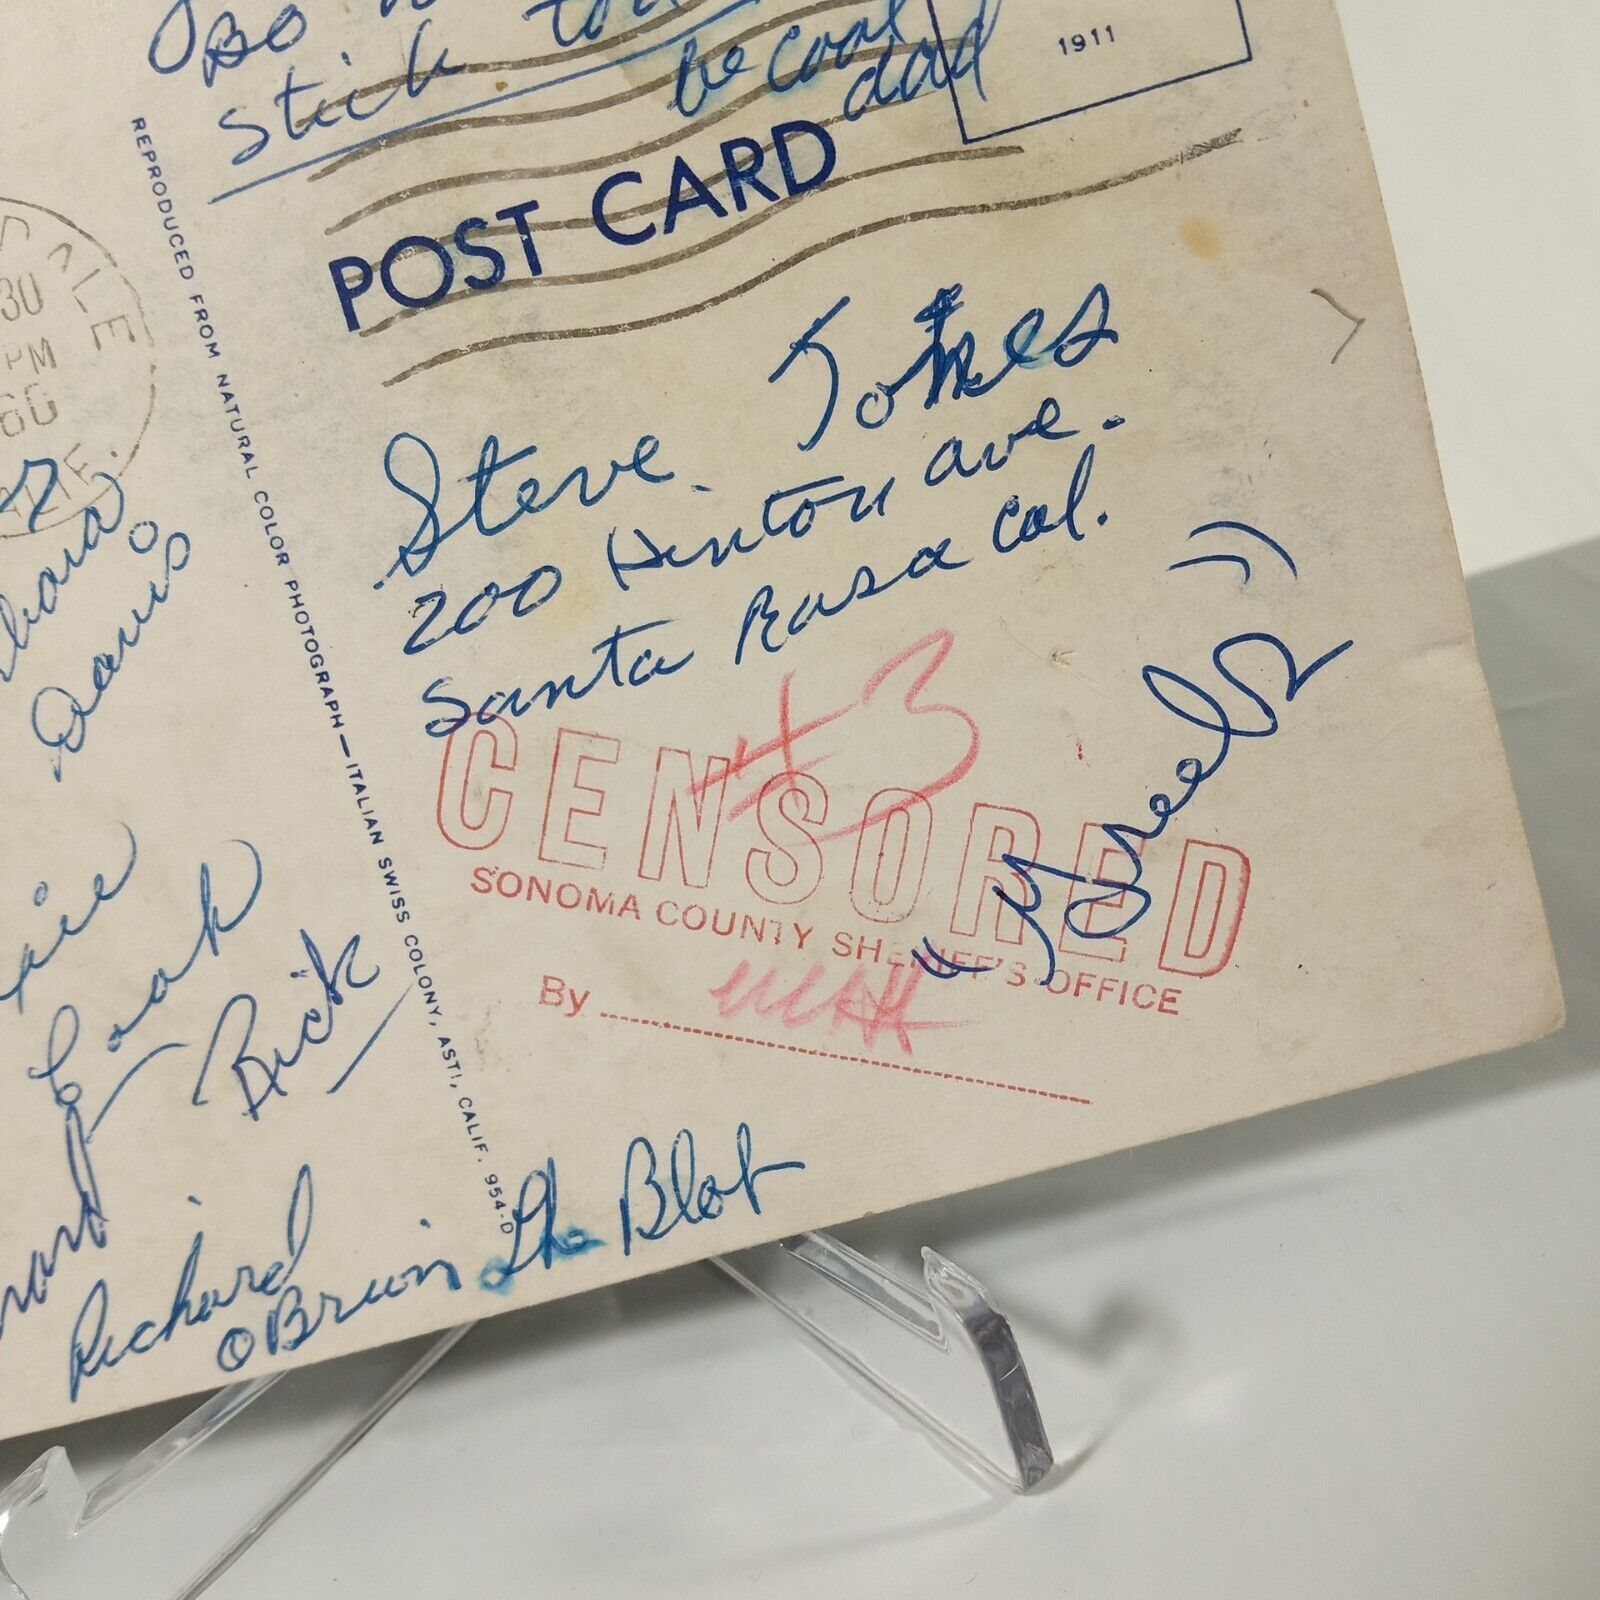 Bo
stick
be cool
dad
1911
POST CARD
REPRODUCED FROM NATURAL COLOR PHOTOGRAPH—ITALIAN SWISS COLONY, ASTI, CALIF. 954-D
ALE
30
PM
60
Steve Tokes
200 Hinton ave.
Santa Rosa Cal.
#3
CENSORED
SONOMA COUNTY SHERIFF'S OFFICE
By
"Wheels"
Davis
Rick
Richard
O Brien The Blot